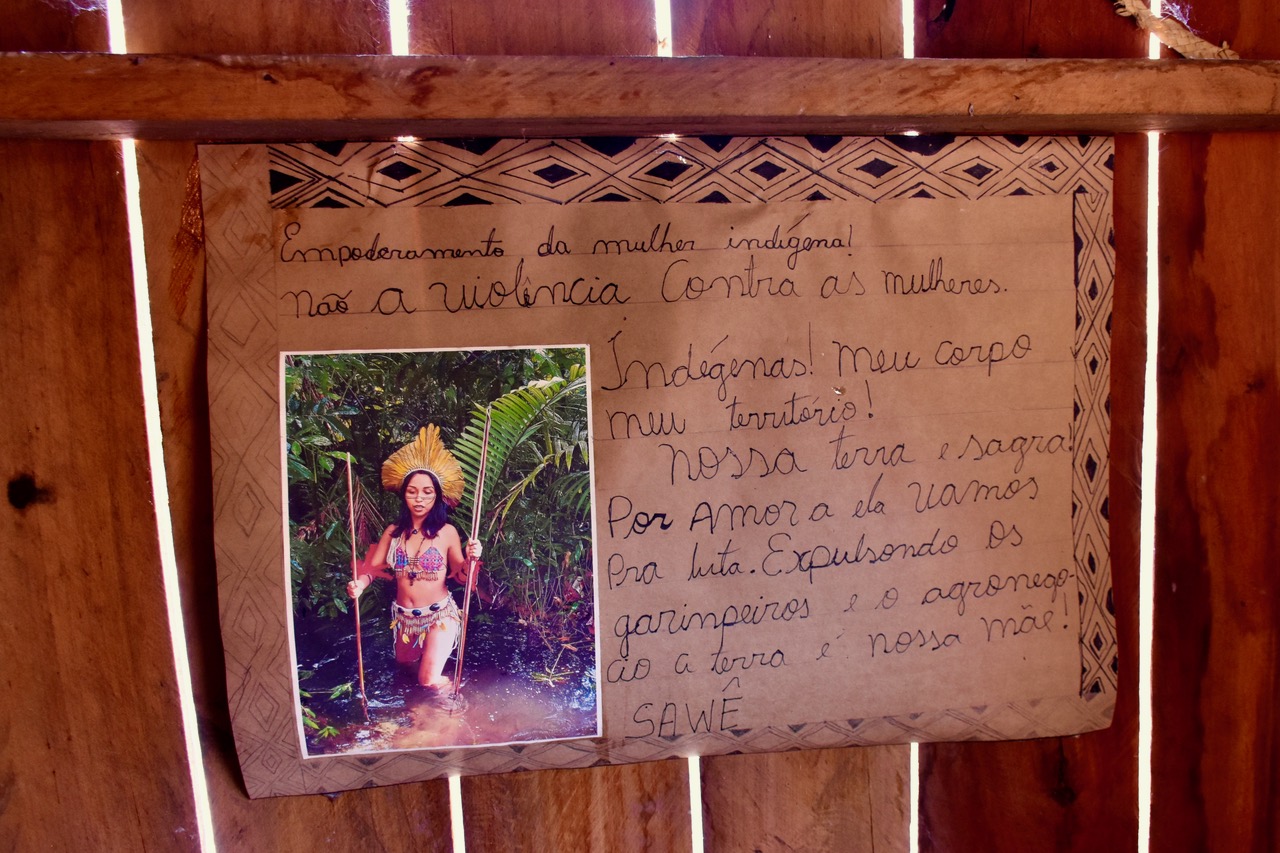 Empoderamento da mulher indígena!
não a violência Contra as mulheres.
Indégenas! Meu corpo
meu território!
Nossa terra e sagra!
Por Amor a ela vamos
Pra luta. Expulsondo os
garimpeiros e o agronego-
cio a terra é nossa mãe!
SAWÊ